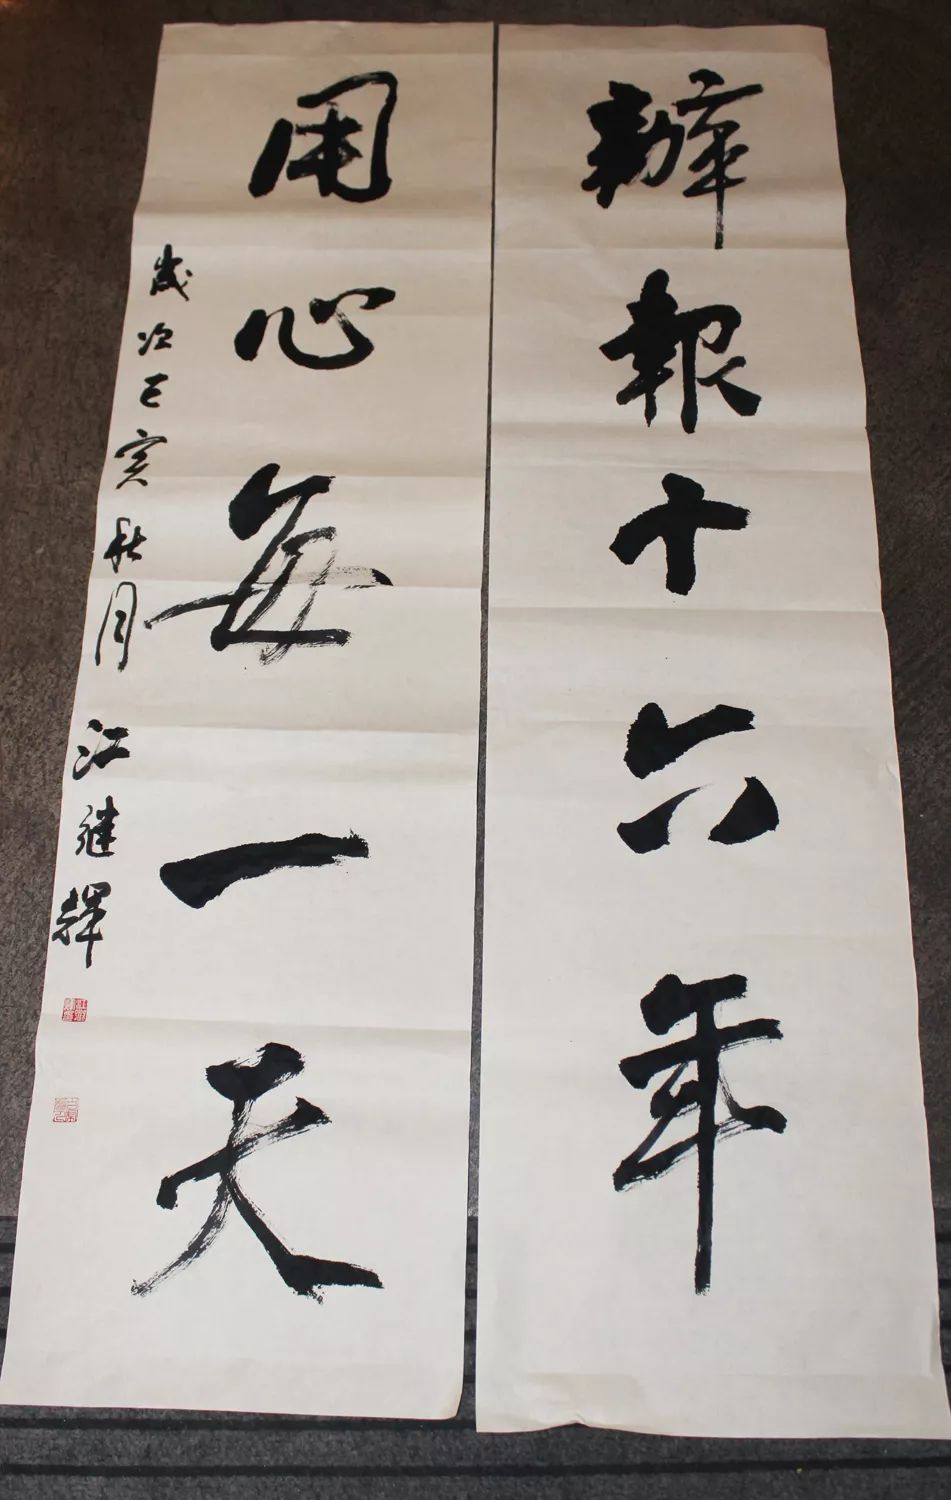 辦報十六年
用心每一天
歲次己亥秋月
江繼輝